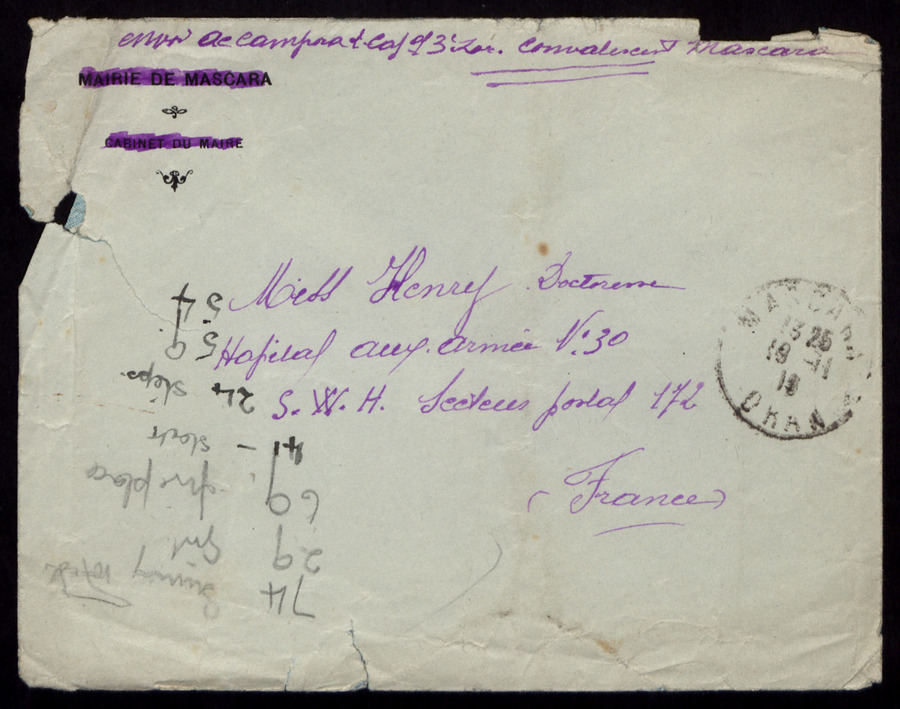 envoi Accampora Cap 9 3e Zou. Convalescent Mascara
MAIRIE DE MASCARA
CABINET DU MAIRE
Miss Henry Doctoresse
Hopital aux armée N: 30
S. W. H. Secteur postal 172
(France)
MASCARA
13 25
19 - 11
18
ORAN
54
59
24 steps
41 -
69. fireplace
29
74